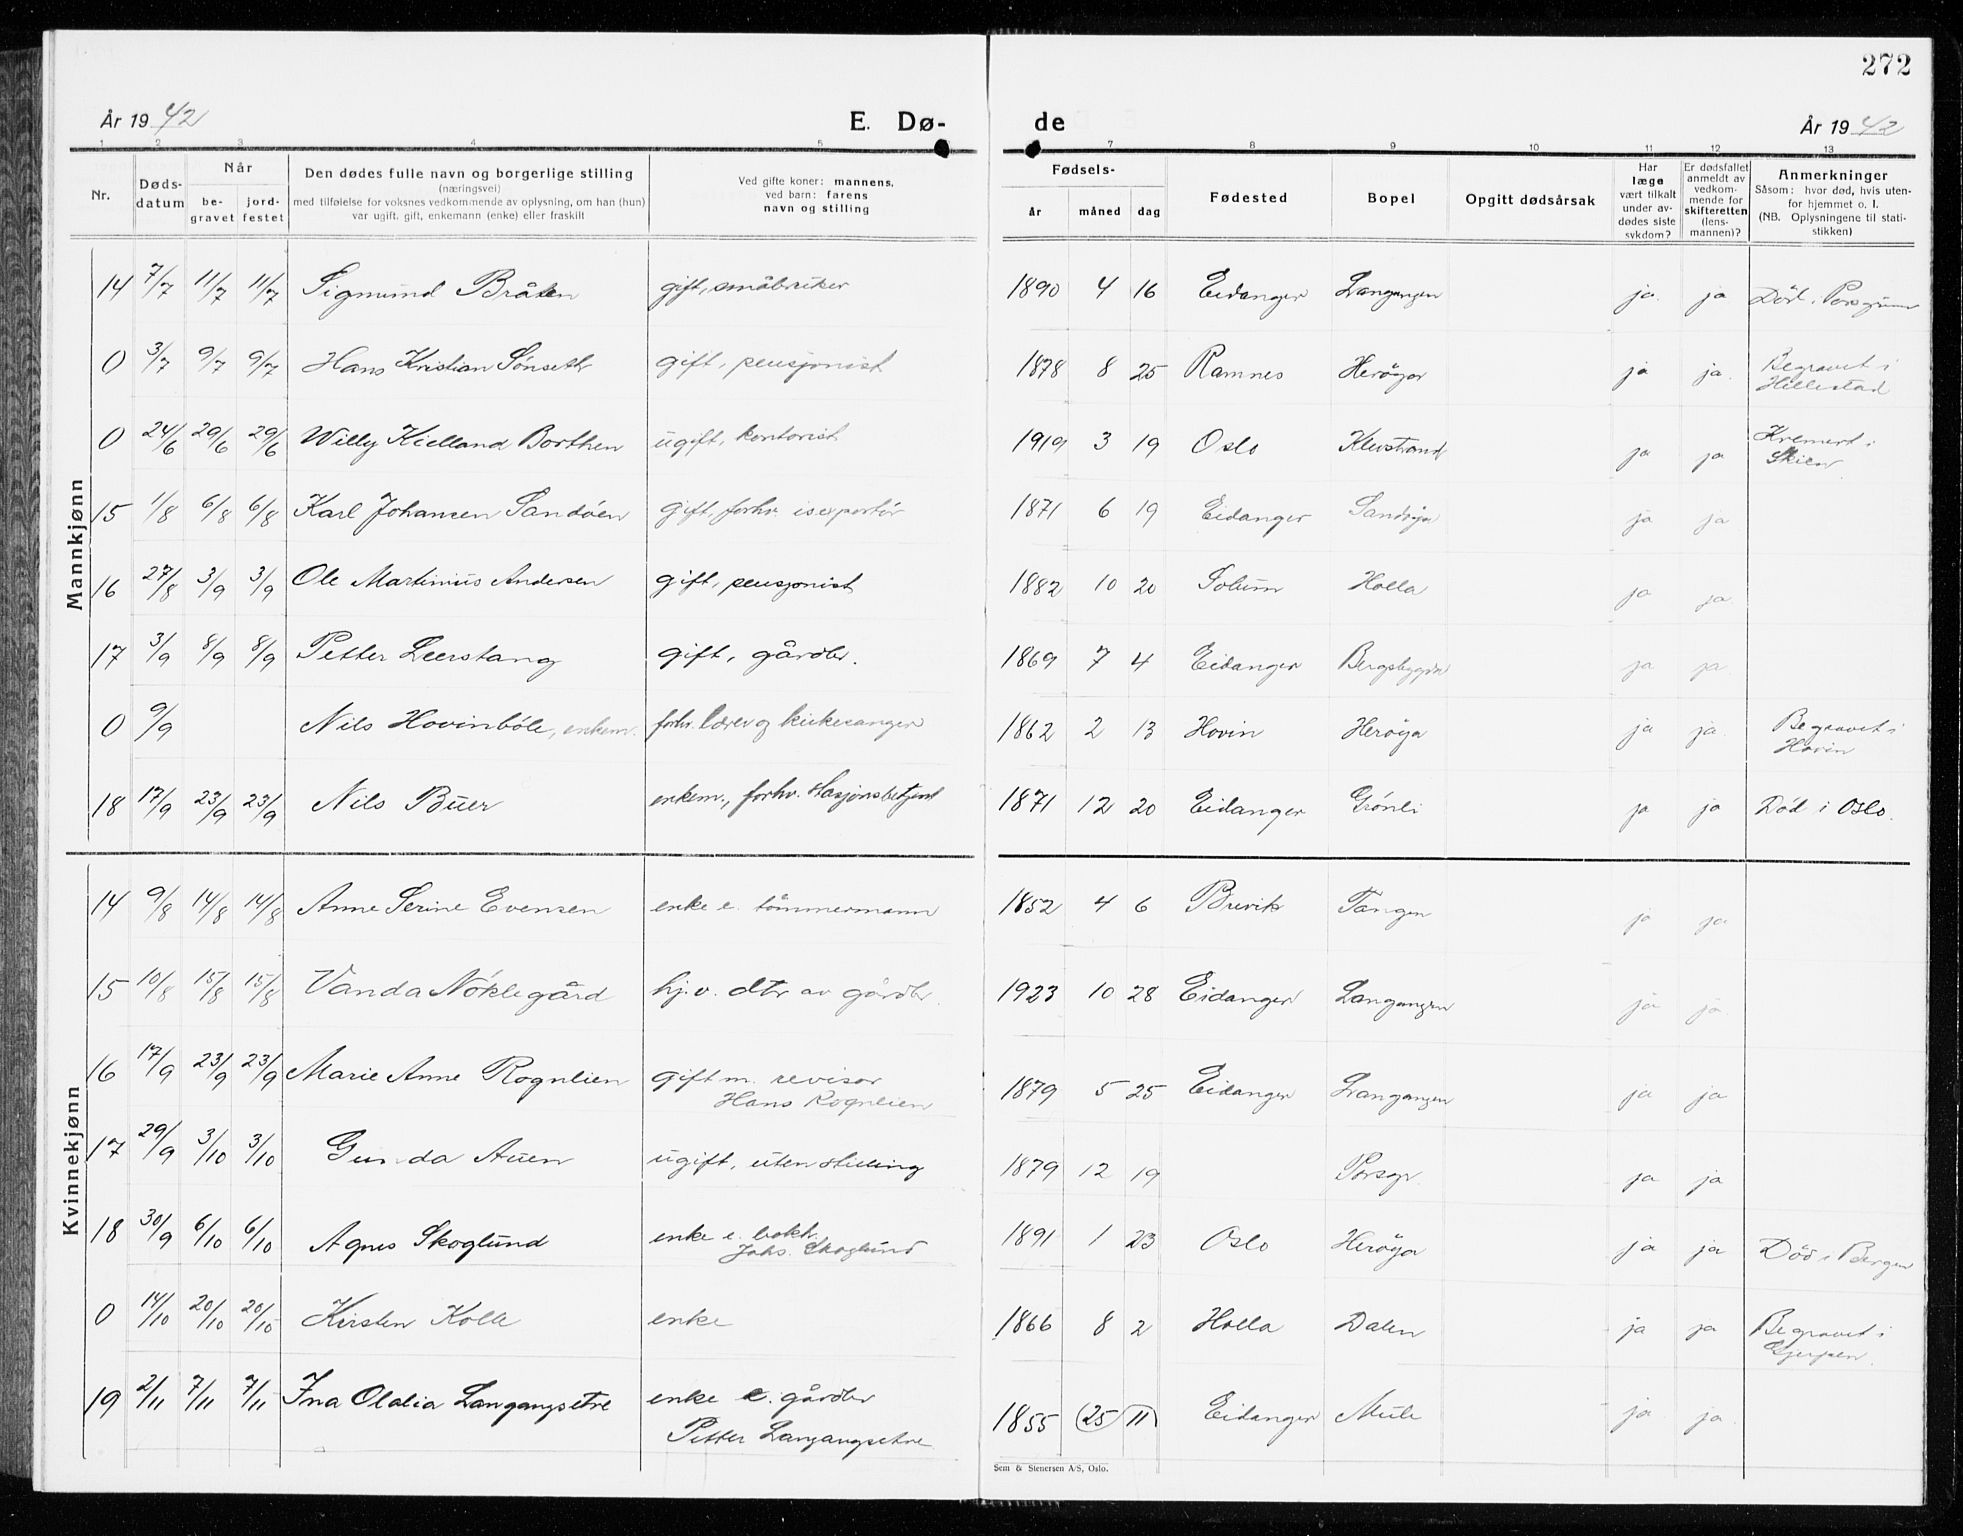 272
År 1942 E. Dø- de År 1942
1 2 3 4 5 7 8 9 10 11 12 13
Nr. Døds-datum Når be-gravet jord-festet Den dødes fulle navn og borgerlige stilling (næringsvei) med tilføielse for voksnes vedkommende av oplysning, om han (hun) var ugift, gift, enkemann (enke) eller fraskilt Ved gifte koner: mannens, ved barn: farens navn og stilling Fødsels- år måned dag Fødested Bopel Opgitt dødsårsak Har læge vært tilkalt under av-dødes siste sykdom? Er dødsfallet anmeldt av vedkom-mende for skifteretten (lens-mannen)? Anmerkninger Såsom: hvor død, hvis uten-for hjemmet o. l. (NB. Oplysningene til stati-stikken)
Mannkjønn
14 7/7 11/7 11/7 Sigmund Bråten gift, småbruker 1890 4 16 Eidanger Langangen ja ja Död i Porsgrunn
0 3/7 9/7 9/7 Hans Kristian Sönseth gift, pensjonist 1878 8 25 Ramnes Heröya ja ja Begravet i Hillestad
0 24/6 29/6 29/6 Willy Kielland Borthen ugift, kontorist 1919 3 19 Oslo Klevstrand ja ja Kremert i Skien
15 1/8 6/8 6/8 Karl Johansen Sandöen gift, forhv. iseksportör 1871 6 19 Eidanger Sandöya ja ja
16 27/8 3/9 3/9 Ole Martinius Andersen gift, pensjonist 1882 10 20 Solum Holla ja ja
17 3/9 8/9 8/9 Petter Leerstang gift, gårdbr. 1869 7 4 Eidanger Bergsbygda ja ja
0 9/9 Nils Hovinböle, enkem. forhv. lærer og kirkesanger 1862 2 13 Hovin Heröya ja ja Begravet i Hovin
18 17/9 23/9 23/9 Nils Buer enkem., forhv. stasjonsbetjent 1871 12 20 Eidanger Grönli ja ja Död i Oslo.
Kvinnekjønn
14 9/8 14/8 14/8 Anne Serine Evensen enke e. tömmermann 1852 4 6 Brevik Tangen ja ja
15 10/8 15/8 15/8 Vanda Nöklegård hj.v. dtr av gårdbr. 1923 10 28 Eidanger Langangen ja ja
16 17/9 23/9 23/9 Marie Anne Rognlien gift m. revisor Hans Rognlien 1879 5 25 Eidanger Langangen ja ja
17 29/9 3/10 3/10 Gunda Auen ugift, uten stilling 1879 12 19 Porsgr. ja ja
18 30/9 6/10 6/10 Agnes Skoglund enke e. bokh. Johs. Skoglund 1891 1 23 Oslo Heröya ja ja Död i Bergen
0 14/10 20/10 20/10 Kirsten Kolle enke 1866 8 2 Holla Dalen ja ja Begravet i Gjerpen.
19 2/11 7/11 7/11 Ina Olalia Langangsetre enke e. gårdbr Petter Langangsetre 1855 (25 11) Eidanger Mule ja ja
Sem & Stenersen A/S, Oslo.